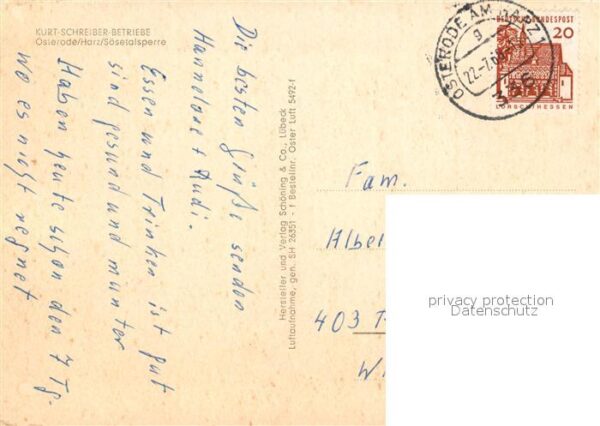 KURT-SCHREIBER-BETRIEBE
Osterode/Harz/Sösetalsperre
Die besten Grüße senden
Hannelore + Rudi.
Essen und Trinken ist gut
sind gesund und munter
Haben heute schon den 7 Tg.
wo es nicht regnet
Hersteller und Verlag Schöning & Co., Lübeck
Luftaufnahme, gen. SH 26351 - f Bestellnr. Oster Luft 5492-f
OSTERODE AM HARZ 1
22.-7.
DEUTSCHE BUNDESPOST
20
LORSCH/HESSEN
Fam.
Albe
403
W
privacy protection
Datenschutz